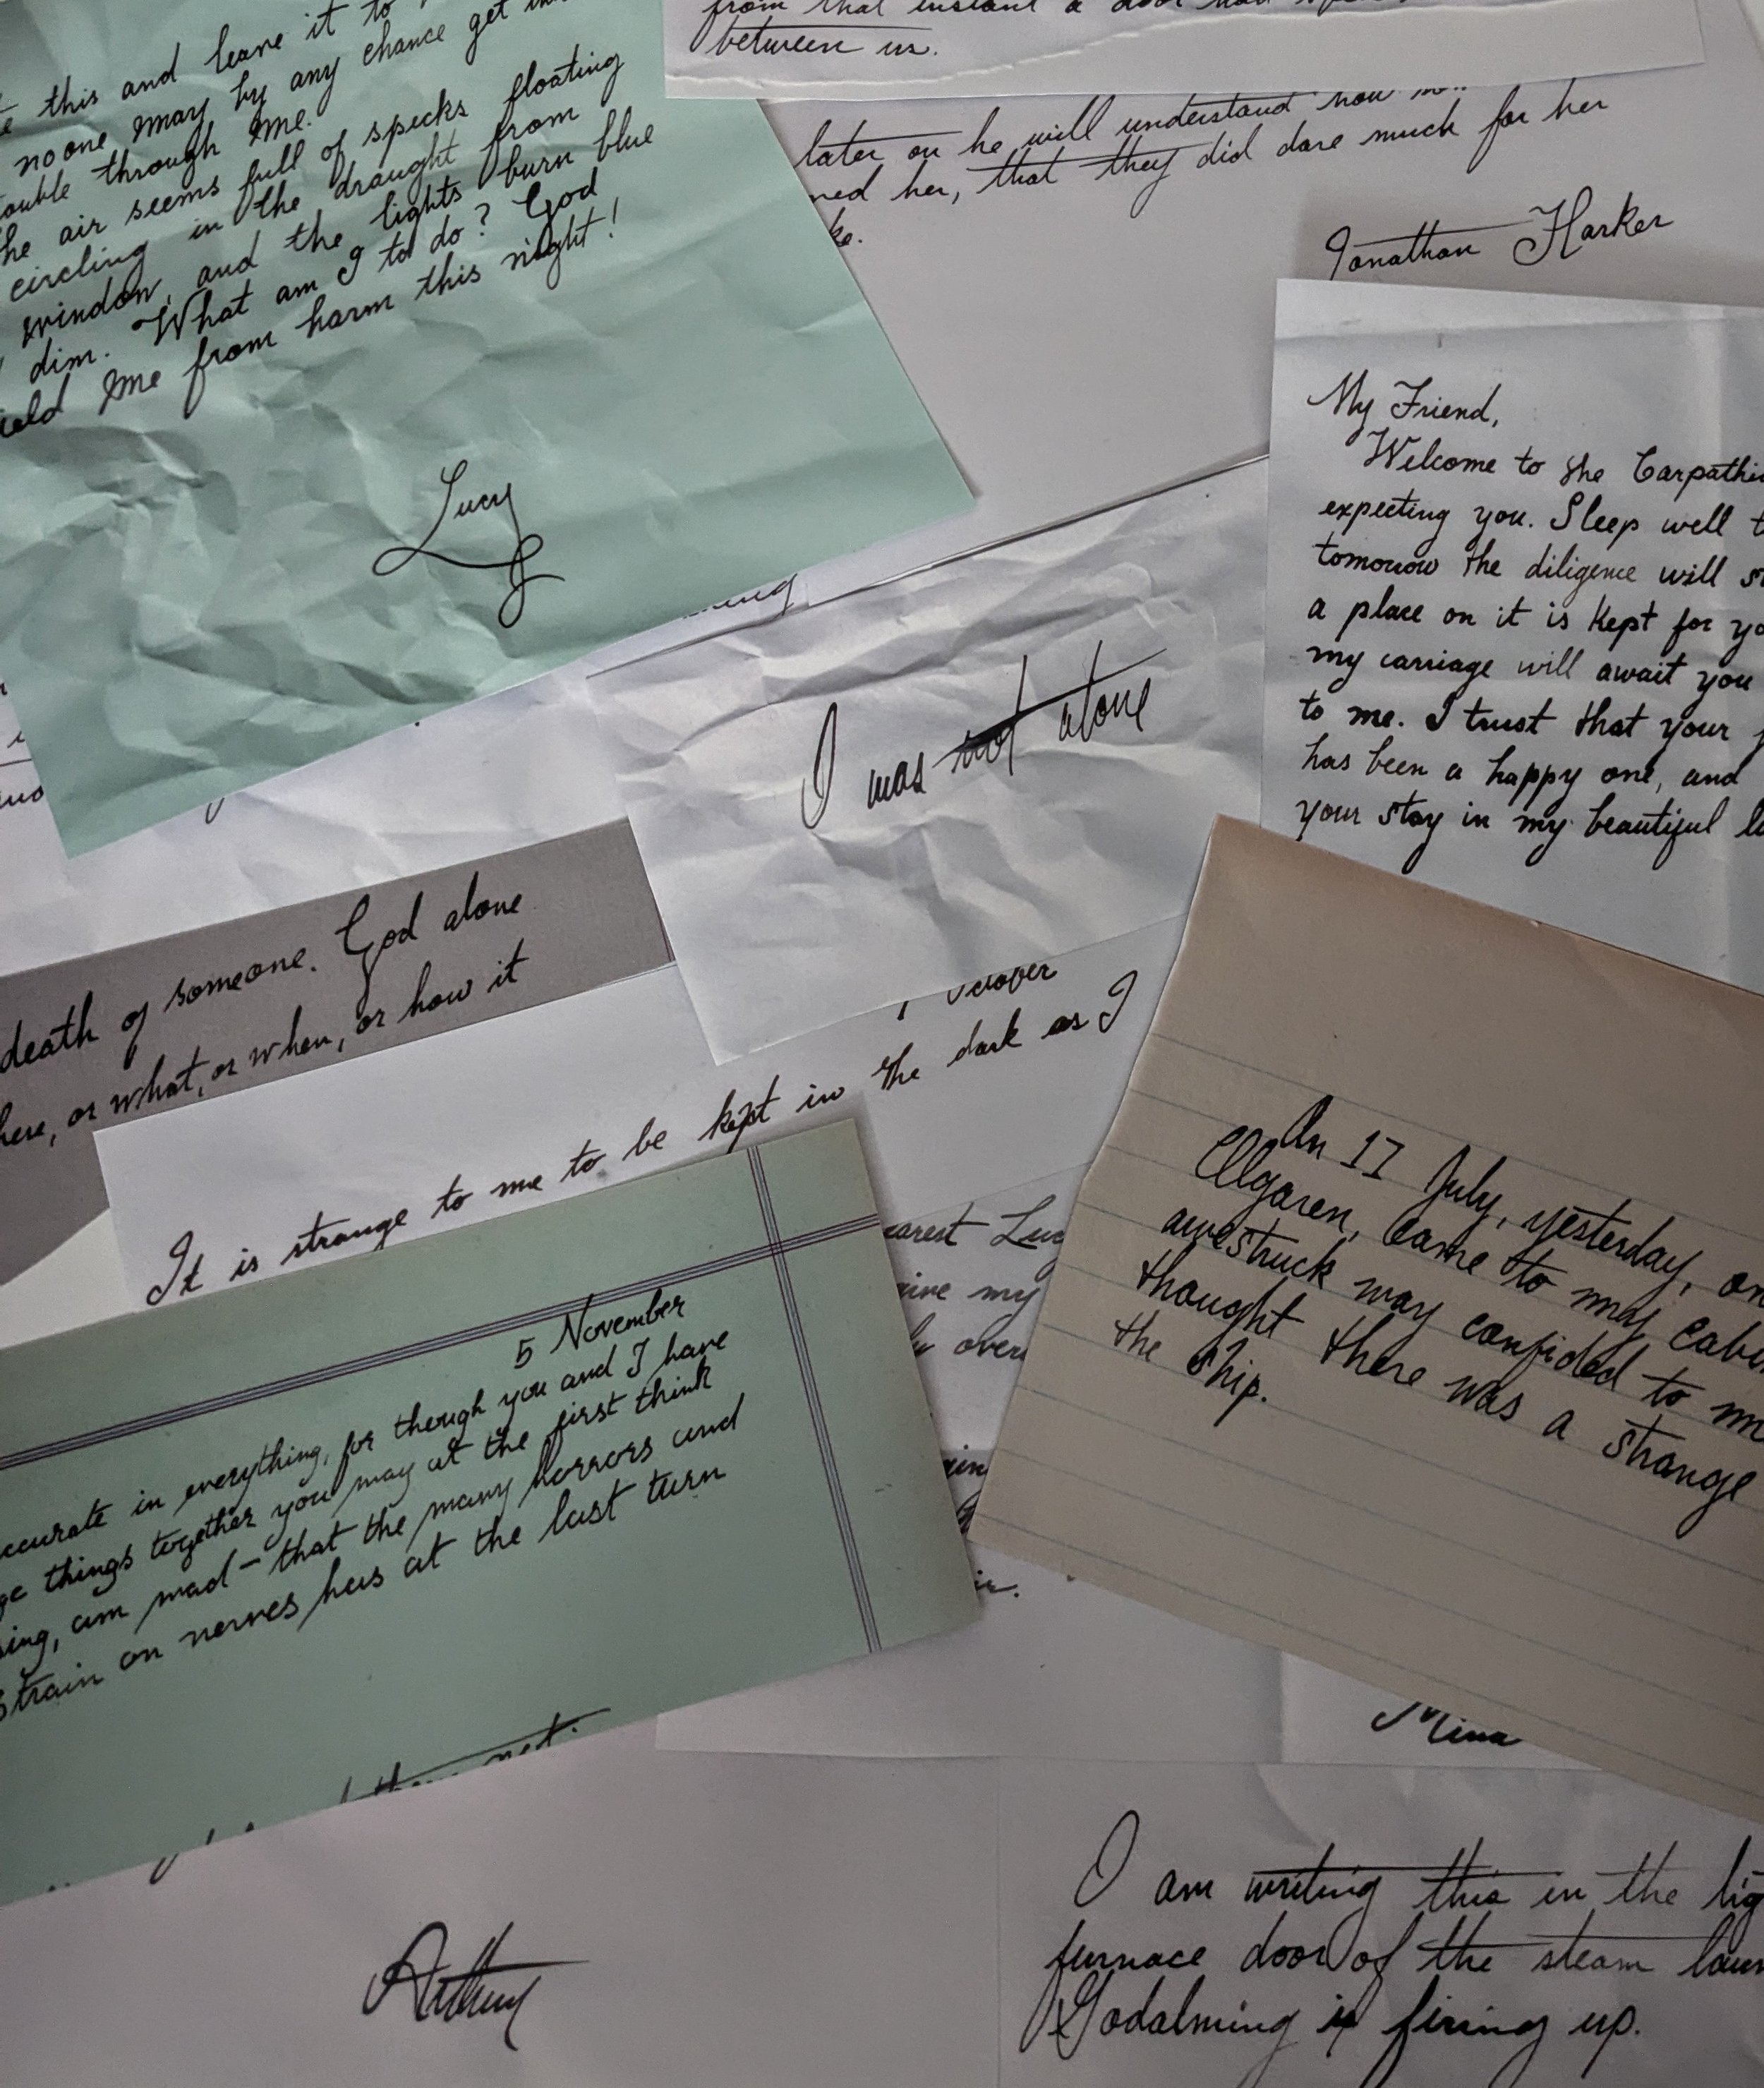 this and leave it to
no one may by any chance get
through me.
he air seems full of specks floating
circling in the draught from
window, and the lights burn blue
dim. What am I to do? God
ield me from harm this night!
Lucy
from that instant a door had
between us.
later on he will understand how
ned her, that they did dare much for her
ke.
Jonathan Harker
My Friend,
Welcome to the Carpathi
expecting you. Sleep well t
tomorrow the diligence will st
a place on it is kept for yo
my carriage will await you
to me. I trust that your j
has been a happy one, and
your stay in my beautiful la
I was not alone
death of someone. God alone
here, or what, or when, or how it
October
It is strange to me to be kept in the dark as I
earest Luc
give my
over
5 November
ccurate in everything, for though you and I have
ge things together you may at the first think
ing, am mad - that the many horrors and
strain on nerves has at the last turn
On 17 July, yesterday, on
Olgaren, came to my cabi
awestruck way confided to m
thought there was a strange
the ship.
Mina
Arthur
I am writing this in the lig
furnace door of the steam laun
Godalming is firing up.